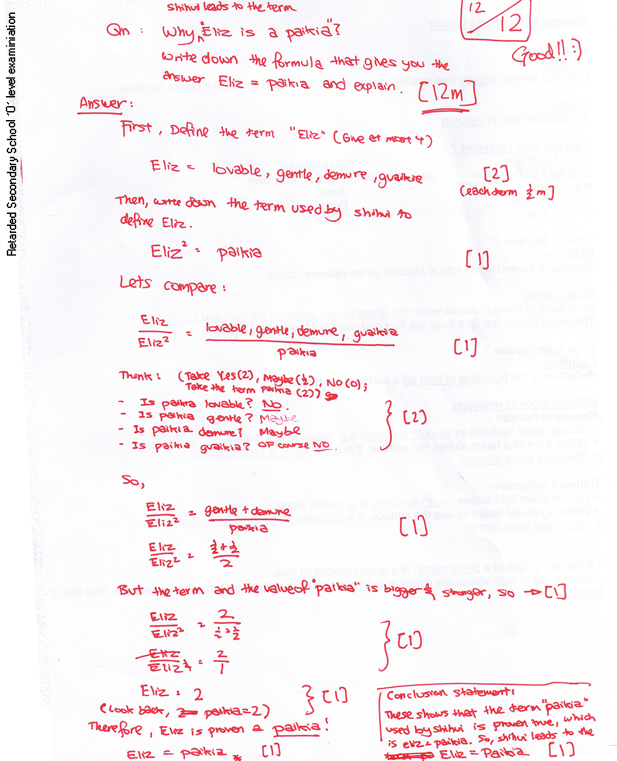 shihui leads to the term
12
12
Good!! :)
Qn : Why "Eliz is a paikia"?
Write down the formula that gives you the
answer Eliz = paikia and explain. [12m]
Answer:
First, Define the term "Eliz" (Give at most 4)
Eliz = lovable, gentle, demure, guaikia [2]
(each term ½ m]
Then, write down the term used by shihui to
define Eliz.
Eliz² = paikia [1]
Lets compare :
Eliz / Eliz² = lovable, gentle, demure, guaikia / paikia [1]
Think : (Take Yes(2), Maybe(½), NO(0);
Take the term paikia (2))
- Is paikia lovable? NO.
- Is paikia gentle? Maybe
- Is paikia demure? Maybe
- Is paikia guaikia? OF course NO.
[2]
So,
Eliz / Eliz² = gentle + demure / paikia [1]
Eliz / Eliz² = ½ + ½ / 2
But the term and the value of "paikia" is bigger & stronger, so → [1]
Eliz / Eliz² = 2 / ½ + ½
Eliz / Eliz² = 2 / 1
[1]
Eliz = 2
(Look back, paikia = 2) [1]
Therefore, Eliz is proven a paikia!
Eliz = paikia [1]
Conclusion statement:
These shows that the term "paikia"
used by shihui is proven true, which
is eliz = paikia. So, shihui leads to the
Eliz = Paikia [1]
Retarded Secondary School 'O' level examiniation